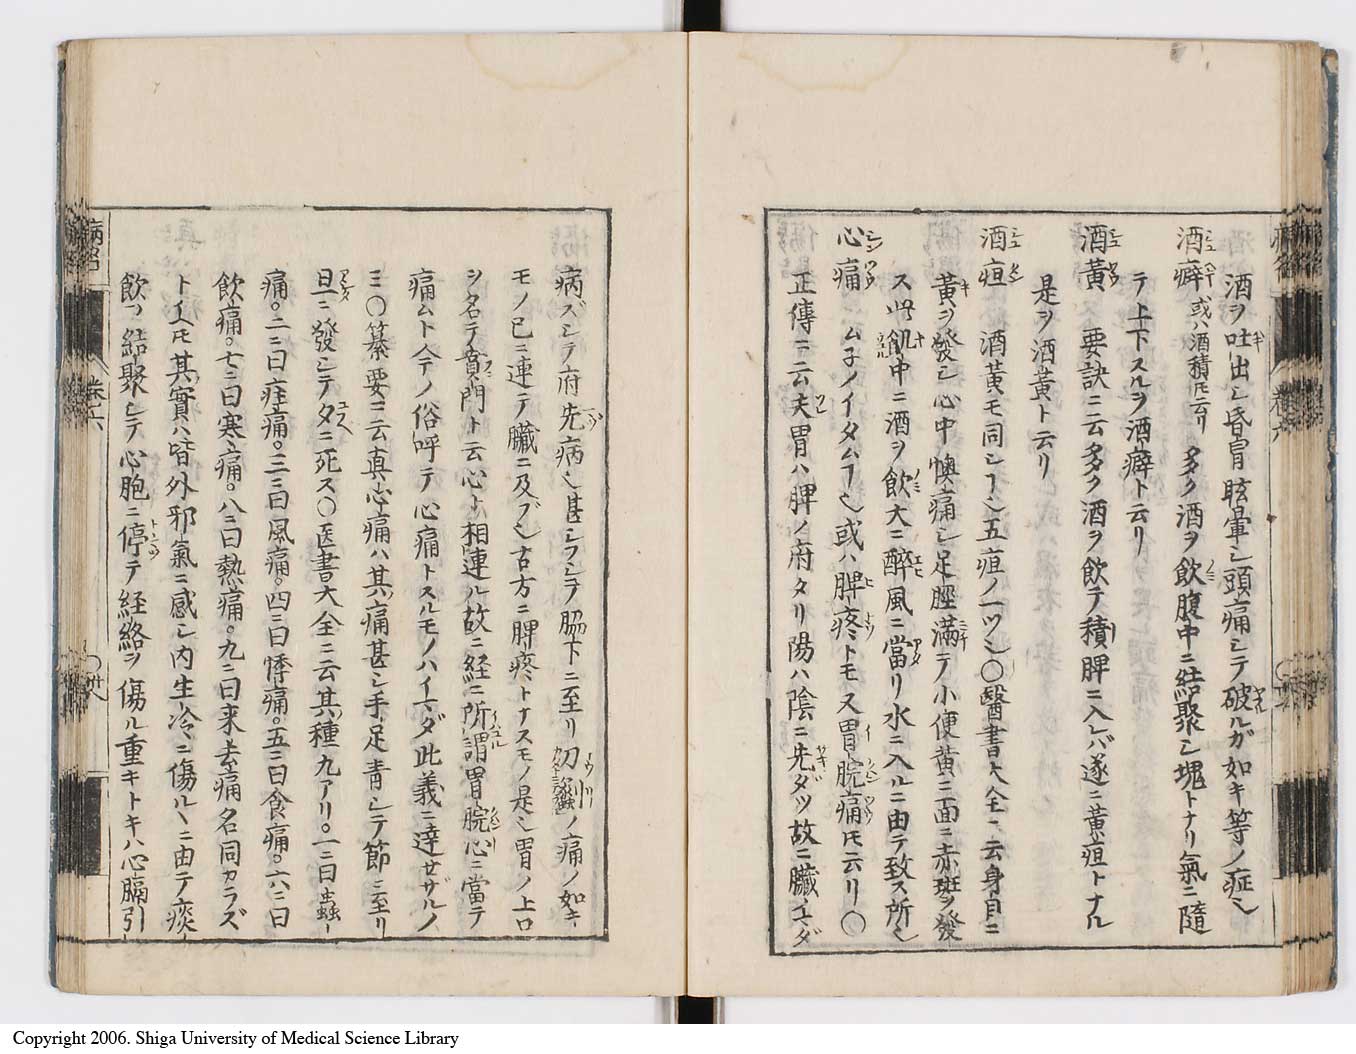 酒ヲ吐出シ昏冒眩暈シ頭痛シテ破ルガ如キ等ノ症也
酒癖 或ハ酒積トモ云リ 多ク酒ヲ飲腹中ニ結聚シ塊トナリ氣ニ隨
テ上下スルヲ酒癖ト云リ
酒黄 要訣ニ云多ク酒ヲ飲テ積脾ニ入レバ遂ニ黄疸トナル
是ヲ酒黄ト云リ
酒疸 酒黄モ同シヿ也五疸ノ一ツ也〇醫書大全ニ云身目ニ
黄ヲ發シ心中懊痛シ足脛滿テ小便黄ニ面ニ赤斑ヲ發
ス此飢中ニ酒ヲ飲大ニ醉風ニ當リ水ニ入ルニ由テ致ス所也
心痛 ム子ノイタムヿ也或ハ脾疼トモス胃脘痛トモ云リ〇
正傳ニ云夫胃ハ脾ノ府タリ陽ハ陰ニ先ダツ故ニ臓イマダ
病ズシテ府先病也甚シフシテ脇下ニ至リ刀ノ痛ノ如キ
モノ已ニ連テ臓ニ及ブ也古方ニ脾疼トナスモノ是也胃ノ上口
ヲ名テ賁門ト云心ト相連ル故ニ経ニ所謂胃脘心ニ當テ
痛ムト今ノ俗呼テ心痛トスルモノハイマダ此義ニ達セザルノ
ミ〇纂要ニ云真心痛ハ其痛甚シ手足青シテ節ニ至リ
旦ニ發シテタニ死ス〇医書大全ニ云其種九アリ。一ニ曰蟲
痛。二ニ曰疰痛。三ニ曰風痛。四ニ曰悸痛。五ニ曰食痛。六ニ曰
飲痛。七ニ曰寒痛。八ニ曰熱痛。九ニ曰来去痛名同カラズ
トイヘ𪜈其實ハ皆外邪氣ニ感シ内生冷ニ傷ルヽニ由テ痰
飲フ結聚シテ心胞ニ停テ経絡ヲ傷ル重キトキハ心膈引
病名 巻六 〇廿八
Copyright 2006. Shiga University of Medical Science Library